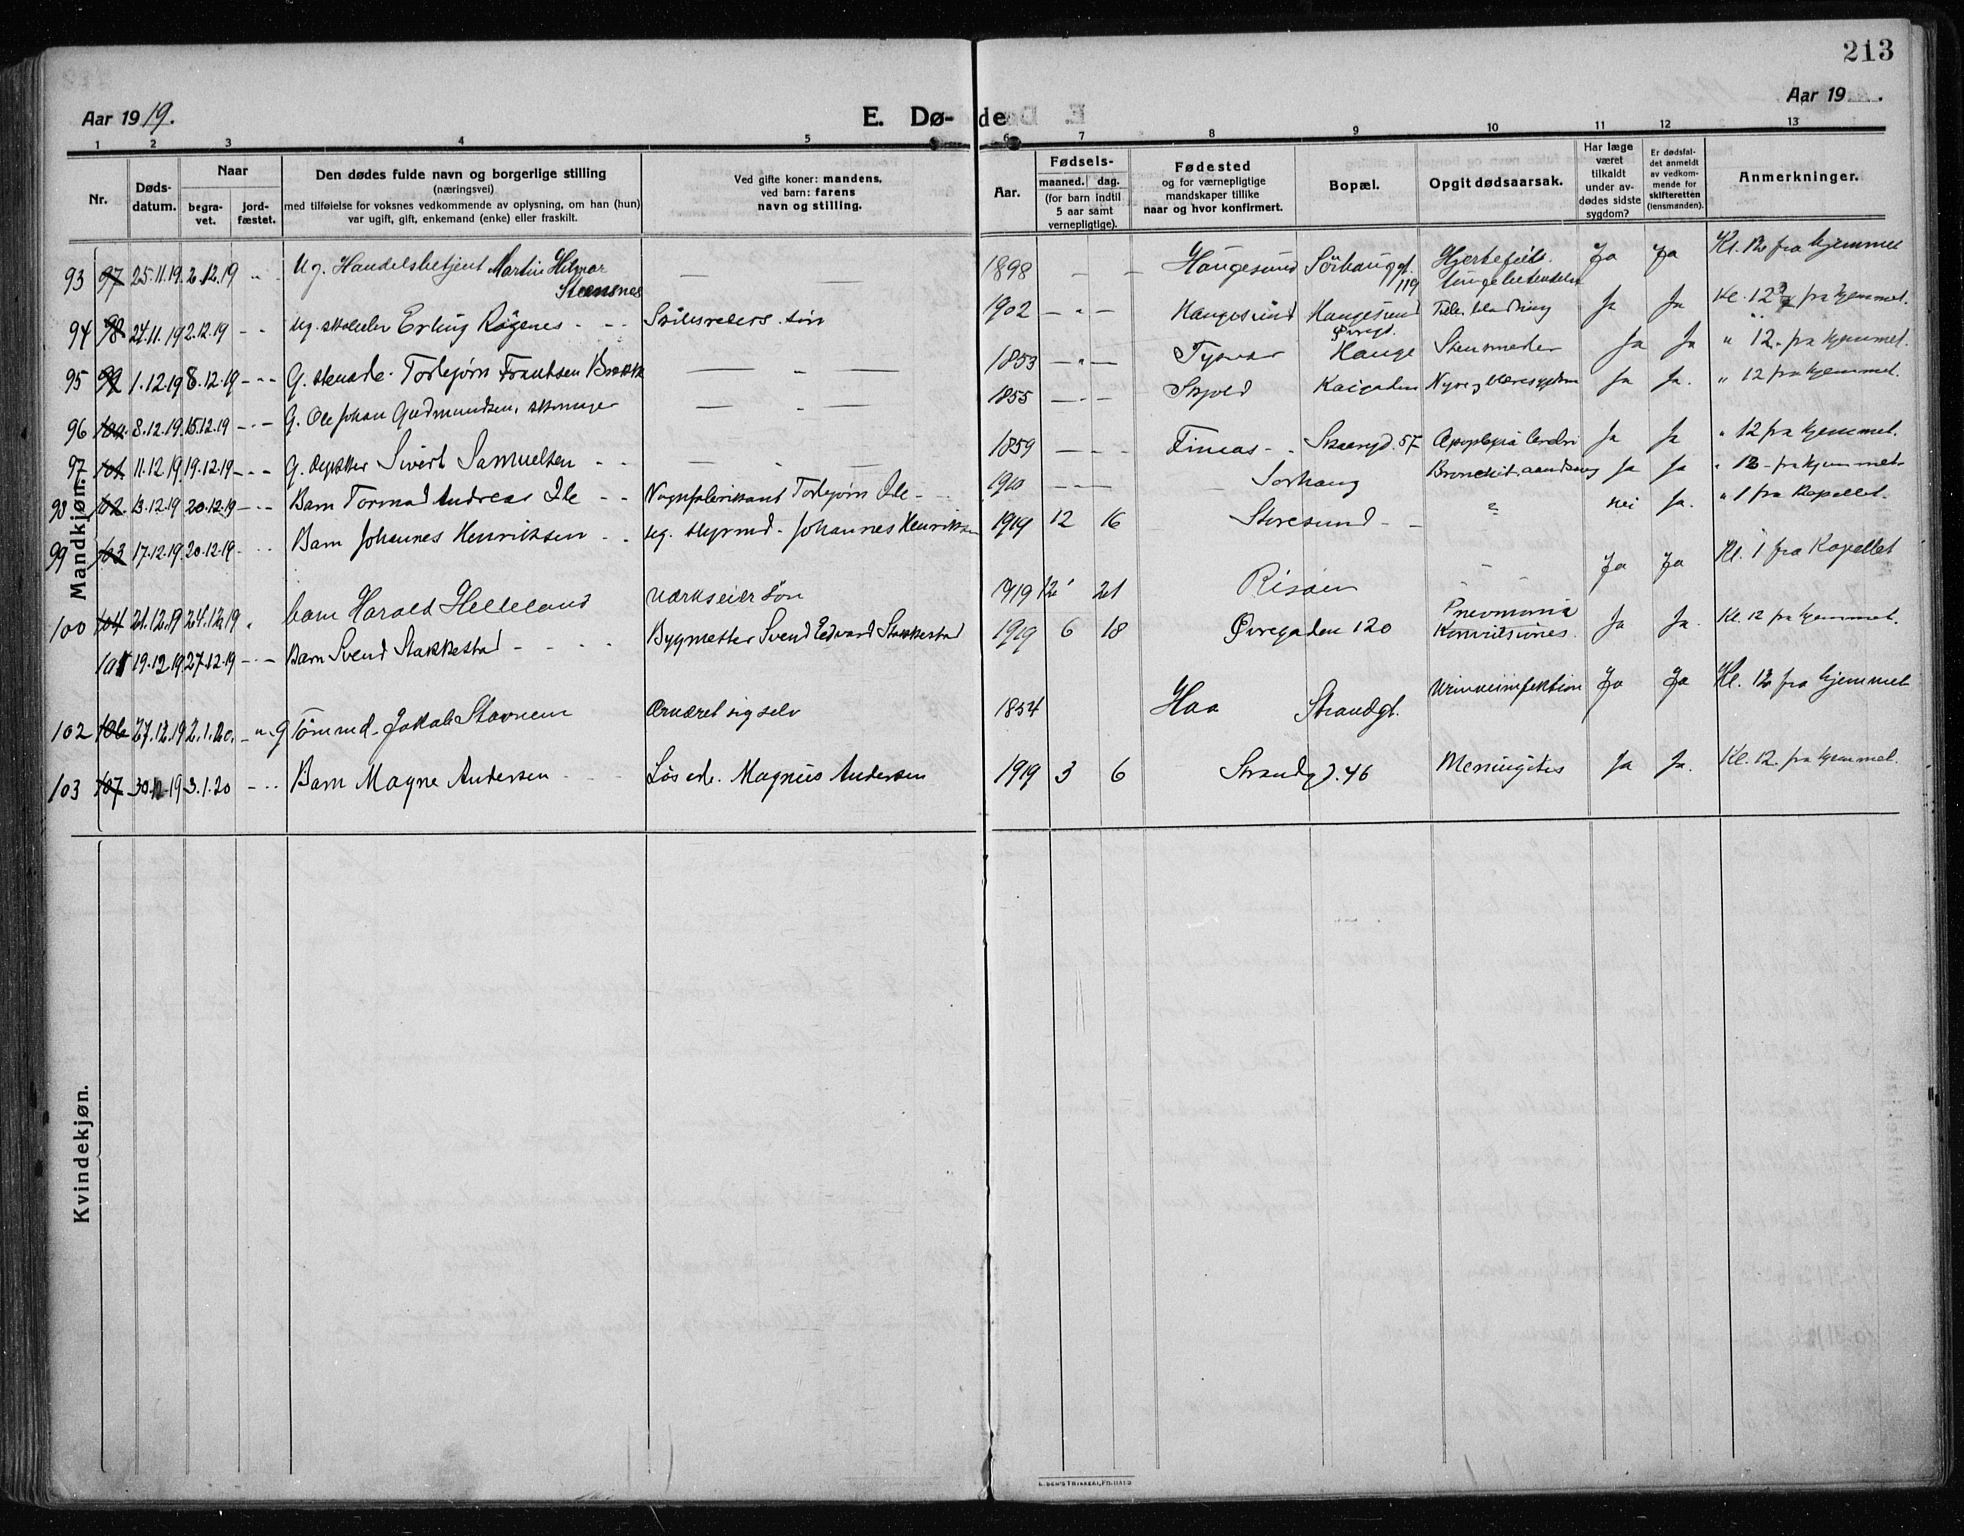 213
Aar 1919.
E. Dø- de
Aar 19
1 2 3 4 5 6 7 8 9 10 11 12 13
Nr.
Døds-datum.
Naar
begra-vet.
jord-fæstet.
Den dødes fulde navn og borgerlige stilling
(næringsvei)
med tilføielse for voksnes vedkommende av oplysning, om han (hun)
var ugift, gift, enkemand (enke) eller fraskilt.
Ved gifte koner: mandens,
ved barn: farens
navn og stilling.
Aar.
Fødsels-
maaned. dag.
(for barn indtil
5 aar samt
vernepligtige).
Fødested
og for værnepligtige
mandskaper tillike
naar og hvor konfirmert.
Bopæl.
Opgit dødsaarsak.
Har læge
været
tilkaldt
under av-
dødes sidste
sygdom?
Er dødsfal-
det anmeldt
av vedkom-
mende for
skifteretten
(lensmanden).
Anmerkninger.
Mandkjøn.
93 97 25.11.19 2.12.19 Ug. Handelsbetjent Martin Hilmar Steensnes — 1898 — — Haugesund Sörhauggt. 119 Hjertefeil. Ja Ja Kl. 12 fra hjemmet
94 98 24.11.19 2.12.19 Ug. Erling Røgenes Skibsreders søn 1902 — — Haugesund Haugesund Øvregd. Ja Ja Kl. 12 fra hjemmet.
95 99 1.12.19 8.12.19 G. Torbjørn Frantsen — 1853 — — Tysvær Hauge Ja Ja " 12 fra hjemmet.
96 100 8.12.19 15.12.19 G. Ole Johan Gudmundsen, — 1855 — — Skjold Kaigaden Ja Ja. " 12 fra hjemmet.
97 101 11.12.19 19.12.19 G. Sivert Samuelsen — 1859 — — Finnaas Strandgd. 57 Apoplexia cerebri Ja Ja " 12 fra hjemmet.
98 102 13.12.19 20.12.19 Barn Tormod Andreas Ile Vognfabrikant Torbjørn Ile 1910 — — Sørhaug Bronchit. Ja Ja " 12 fra hjemmet
99 103 17.12.19 20.12.19 Barn Johannes Henriksen Ug. styrmd. Johannes Henriksen 1919 12 16 Storesund ? Nei Ja. " 1 fra Kapellet.
100 104 21.12.19 24.12.19 barn Harald Helleland Værkseier søn 1919 12 21 Risøen — Ja Ja Kl. 1 fra Kapellet
101 19.12.19 27.12.19 Barn Svend Stakkestad Bygmester Svend Edvard Stakkestad 1919 6 18 Øvregaden 120 Pneumonia Konvulsiones. Ja Ja. Kl. 12 fra hjemmet.
102 106 27.12.19 2.1.20. G Tømmd. Jakob Stavnem Ernæret sig selv 1854 Haa Strandgt. Urinveiinfektion Ja Ja Kl. 12 fra hjemmet
103 107 30.12.19 3.1.20 Barn Magne Andersen Løsarb. Magnus Andersen 1919 3 6 Strandgd. 46 Meningitis Ja Ja. Kl. 12 fra hjemmet.
Kvindekjøn.